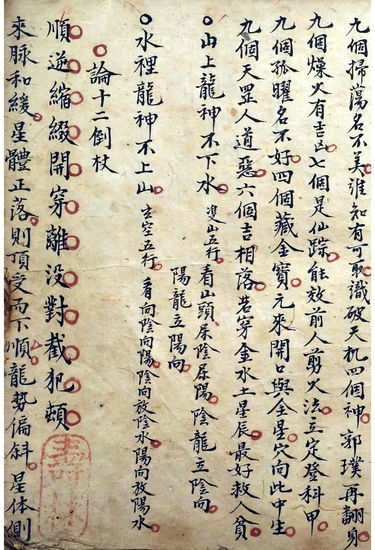 九個掃蕩名不美誰知有可取識破天机四個神郭璞再翻身
九個燥火有吉凶七個是仙踪能效前人剪火法立定登科甲
九個孤曜名不好四個藏金寶元來開口與金星穴向此中生
九個天罡人道惡六個吉相落若穿金水土星辰最好救人貧
山上龍神不下水 雙山五行 看山頭屎陰屎陽陰龍立陰向
陽龍立陽向
水裡龍神不上山 玄空五行 看向陰向陽陰向放陰水陽向放陽水
論十二倒杖
順逆縮綴開穿離没對截犯頓
來脉和緩星體正落則頂受而下順龍勢偏斜星体側